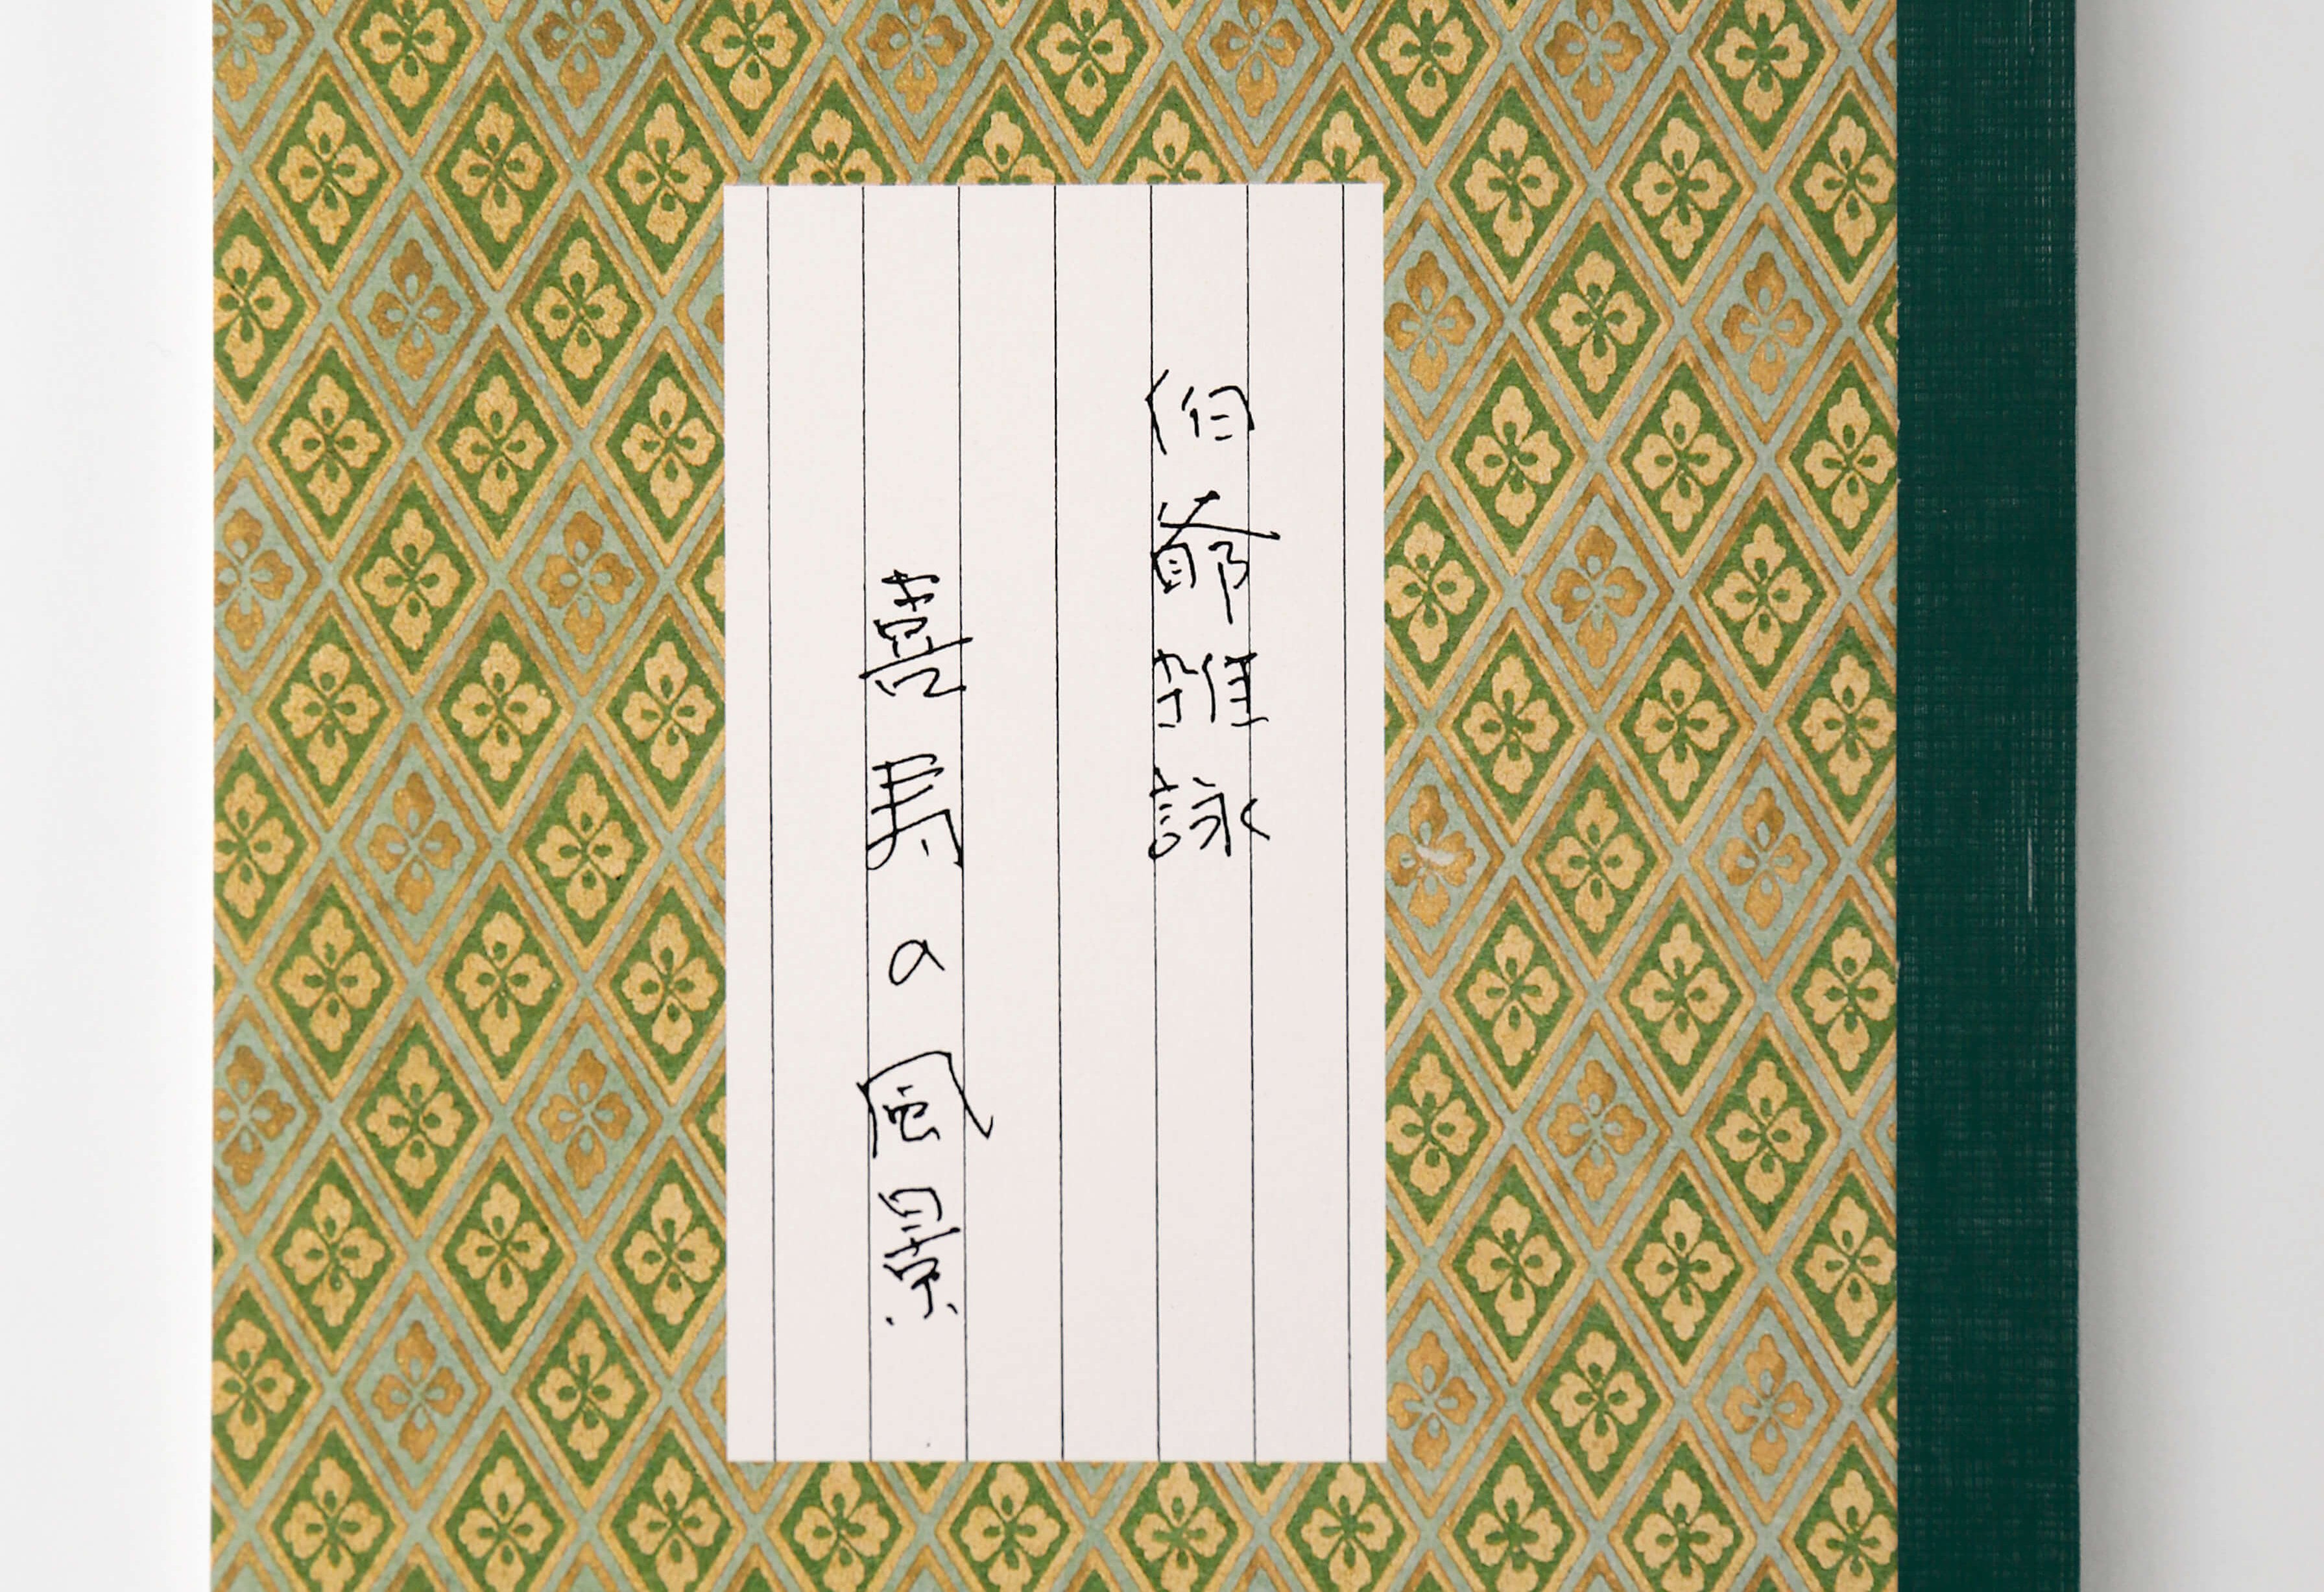 伯爺雑詠
喜寿の風景